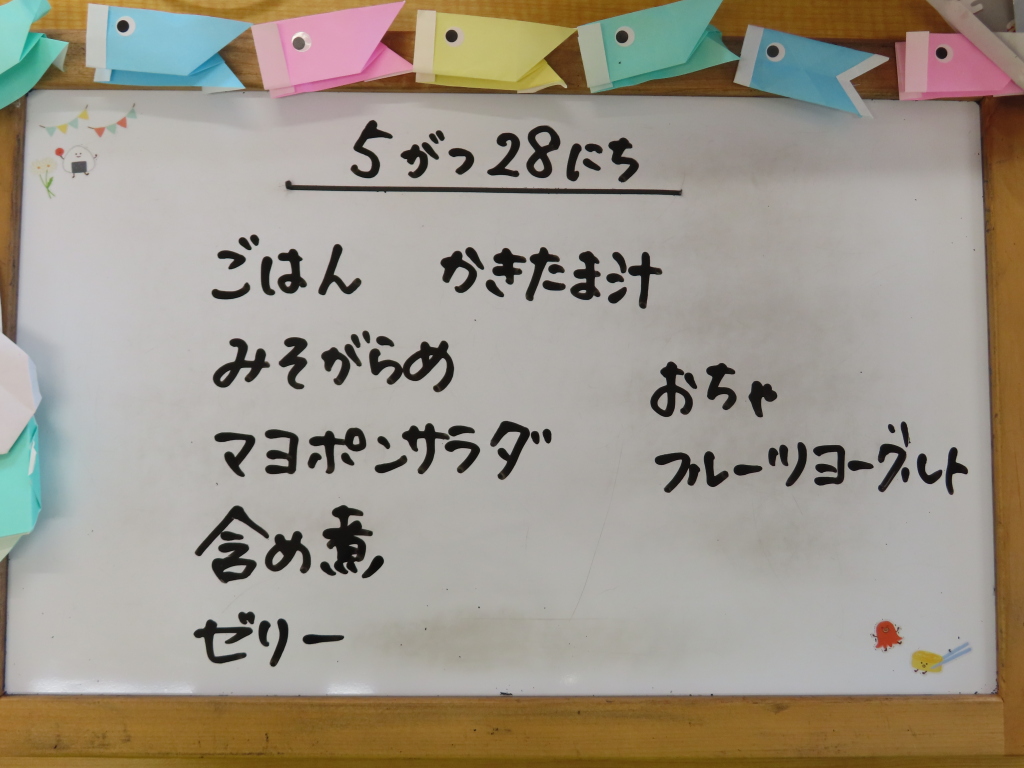 5がつ28にち
ごはん　かきたま汁
みそがらめ
マヨポンサラダ
含め煮
ゼリー
おちゃ
フルーツヨーグルト